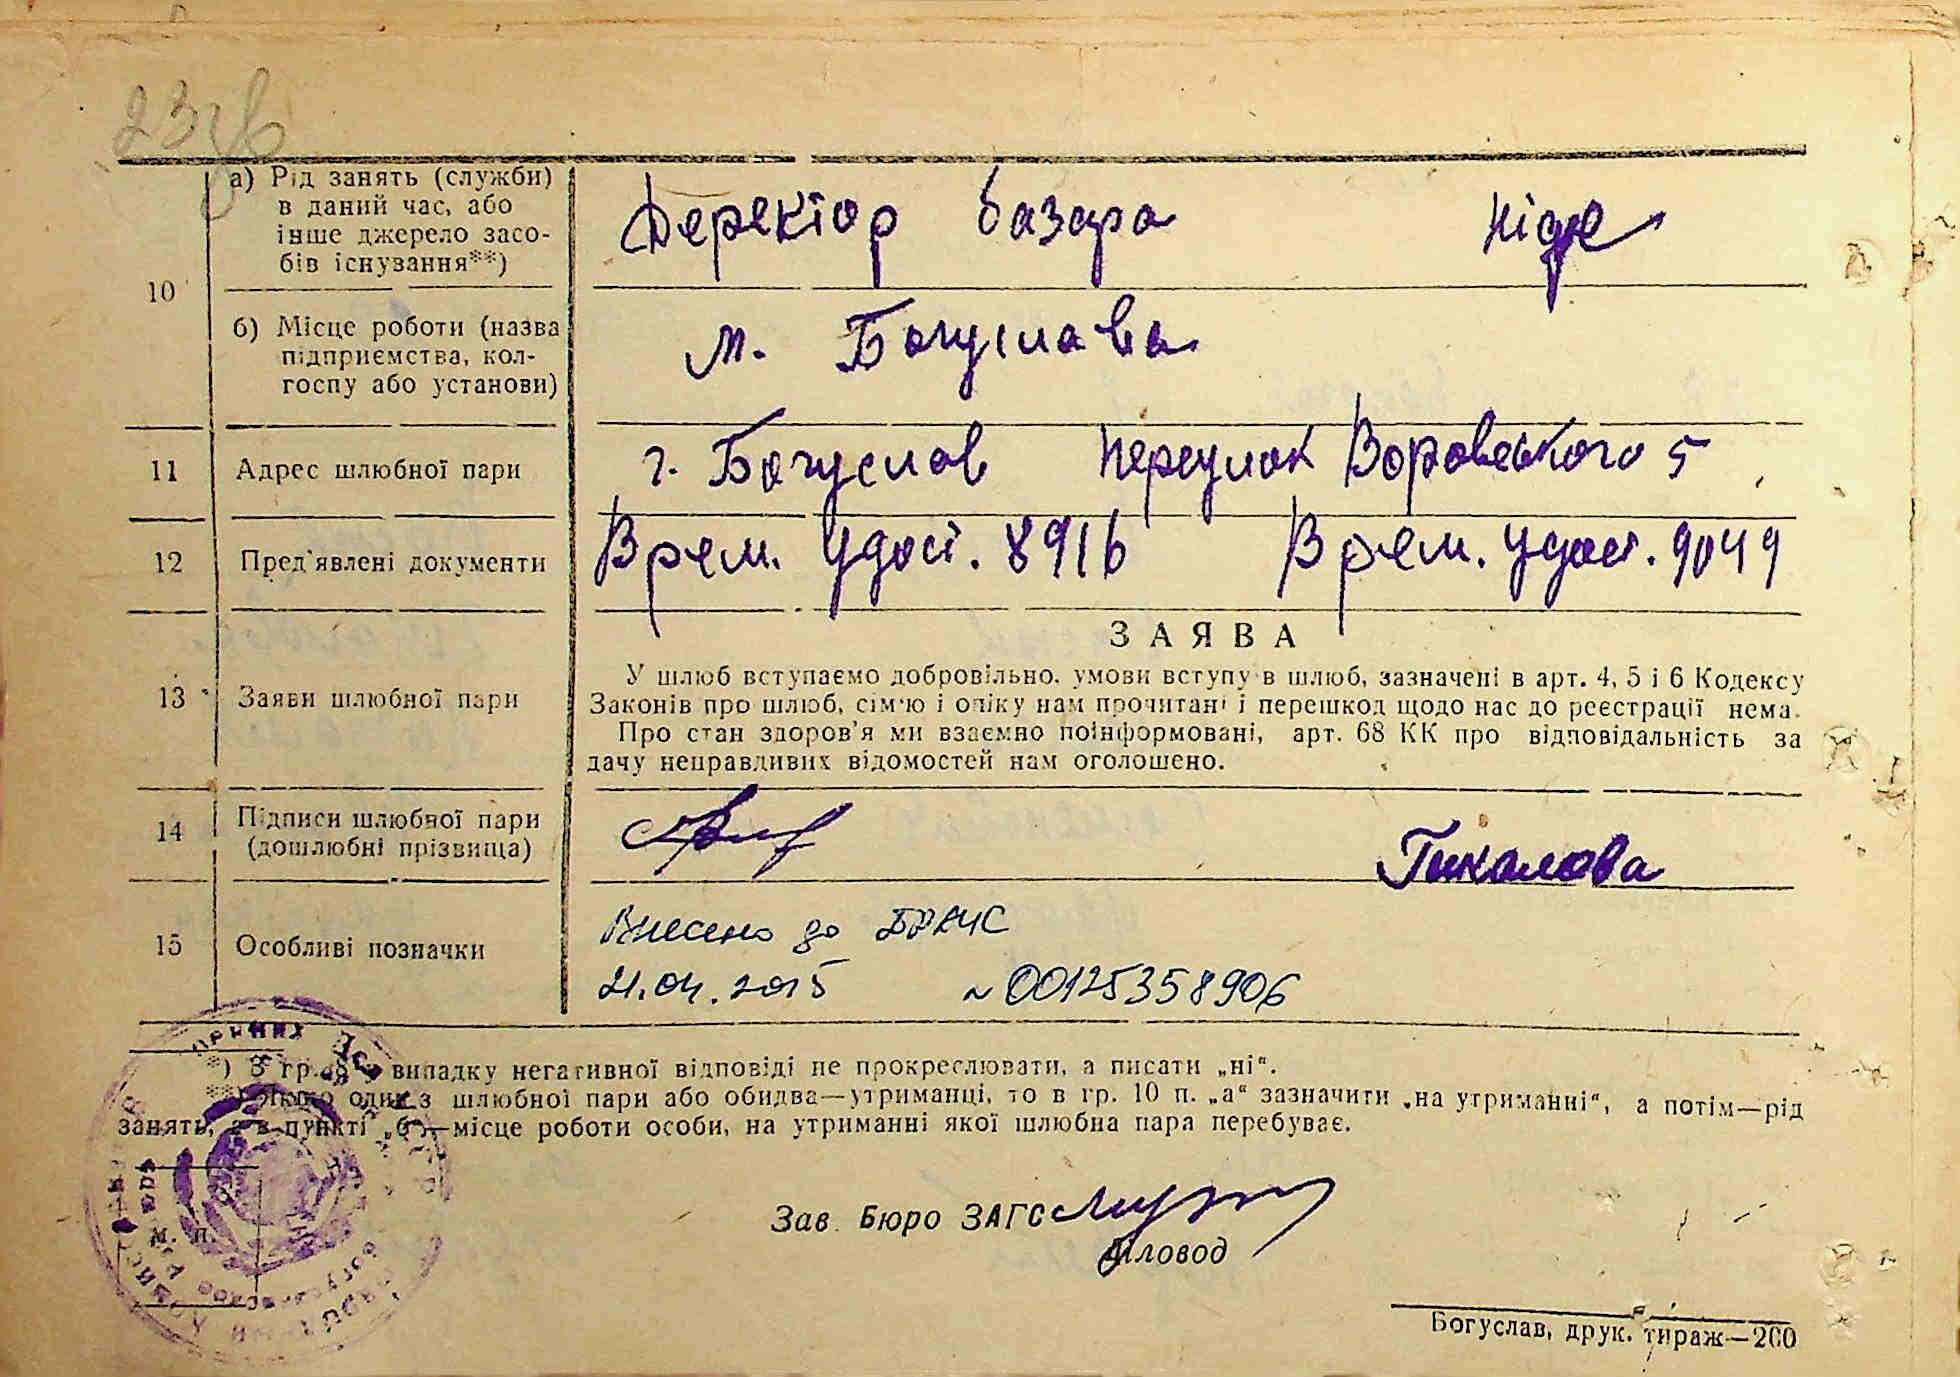 а) Рід занять (служби)
в даний час, або
інше джерело засо-
бів існування**)
Деректор базара Ніде
10
б) Місце роботи (назва
підприємства, кол-
госпу або установи)
м. Богуслава
11 Адрес шлюбної пари г. Богуслав переулок Воровського 5
12 Пред'явлені документи Врем. удост. 8916 Врем. удост. 9049
13 Заяви шлюбної пари
ЗАЯВА
У шлюб вступаємо добровільно, умови вступу в шлюб, зазначені в арт. 4, 5 і 6 Кодексу
Законів про шлюб, сім'ю і опіку нам прочитані і перешкод щодо нас до реєстрації нема.
Про стан здоров'я ми взаємно поінформовані, арт. 68 КК про відповідальність за
дачу неправдивих відомостей нам оголошено.
14 Підписи шлюбної пари
(дошлюбні прізвища)
Гикалова
15 Особливі позначки
Внесено до ДРАЦС
21.04.2015 № 00125358906
*) З гр. 8 у випадку негативної відповіді не прокреслювати, а писати „ні“.
**) Якщо один з шлюбної пари або обидва—утриманці, то в гр. 10 п. „а“ зазначити „на утриманні“, а потім—рід
занять, а в пункті „б“—місце роботи особи, на утриманні якої шлюбна пара перебуває.
М. П.
Зав. Бюро ЗАГС
Иловод
Богуслав, друк. тираж—200